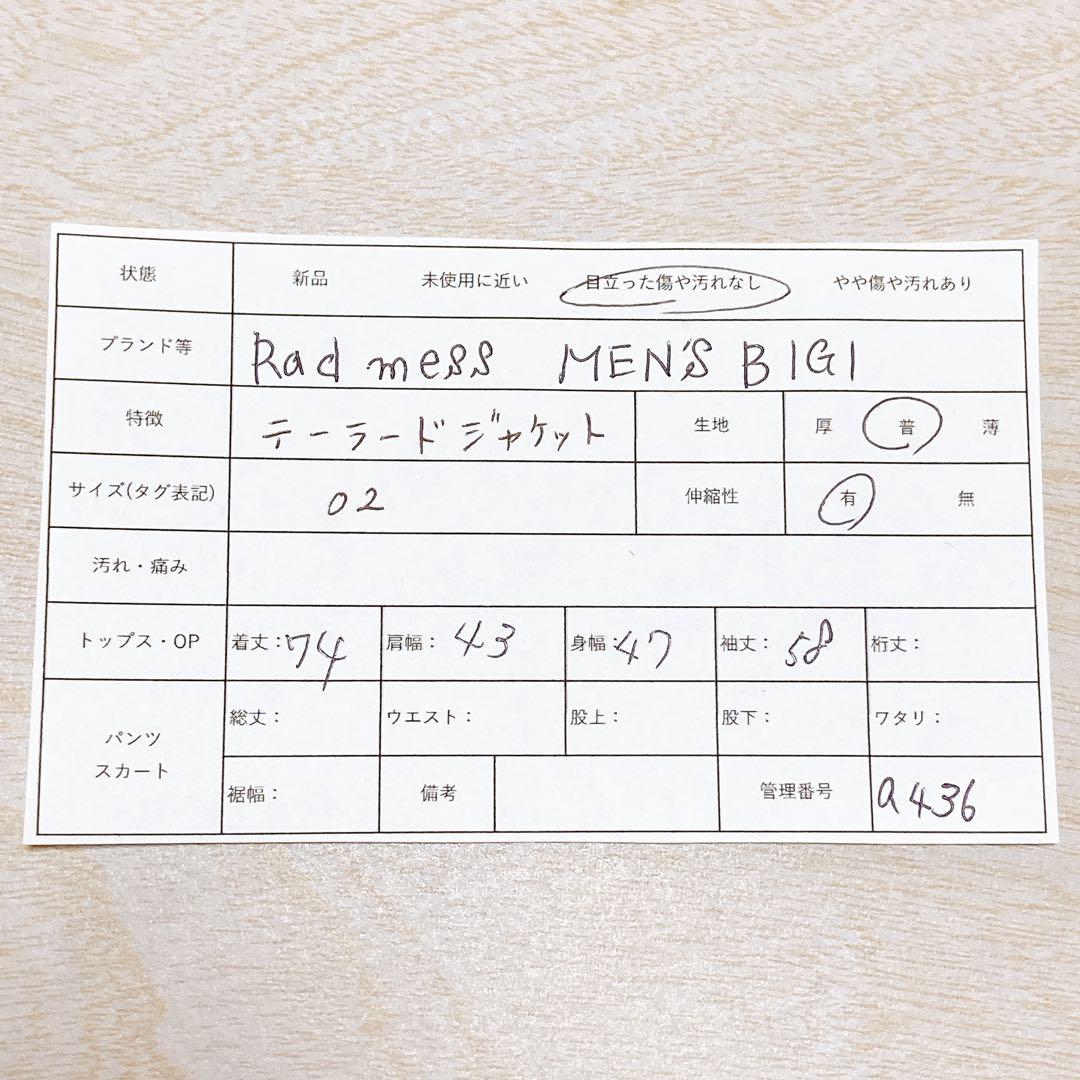 状態 新品 未使用に近い 目立った傷や汚れなし やや傷や汚れあり
ブランド等 Rad mess MEN'S BIGI
特徴 テーラードジャケット 生地 厚 普 薄
サイズ(タグ表記) 02 伸縮性 有 無
汚れ・痛み
トップス・OP 着丈:74 肩幅:43 身幅:47 袖丈:58 裄丈:
パンツ スカート 総丈: ウエスト: 股上: 股下: ワタリ:
裾幅: 備考 管理番号 a436